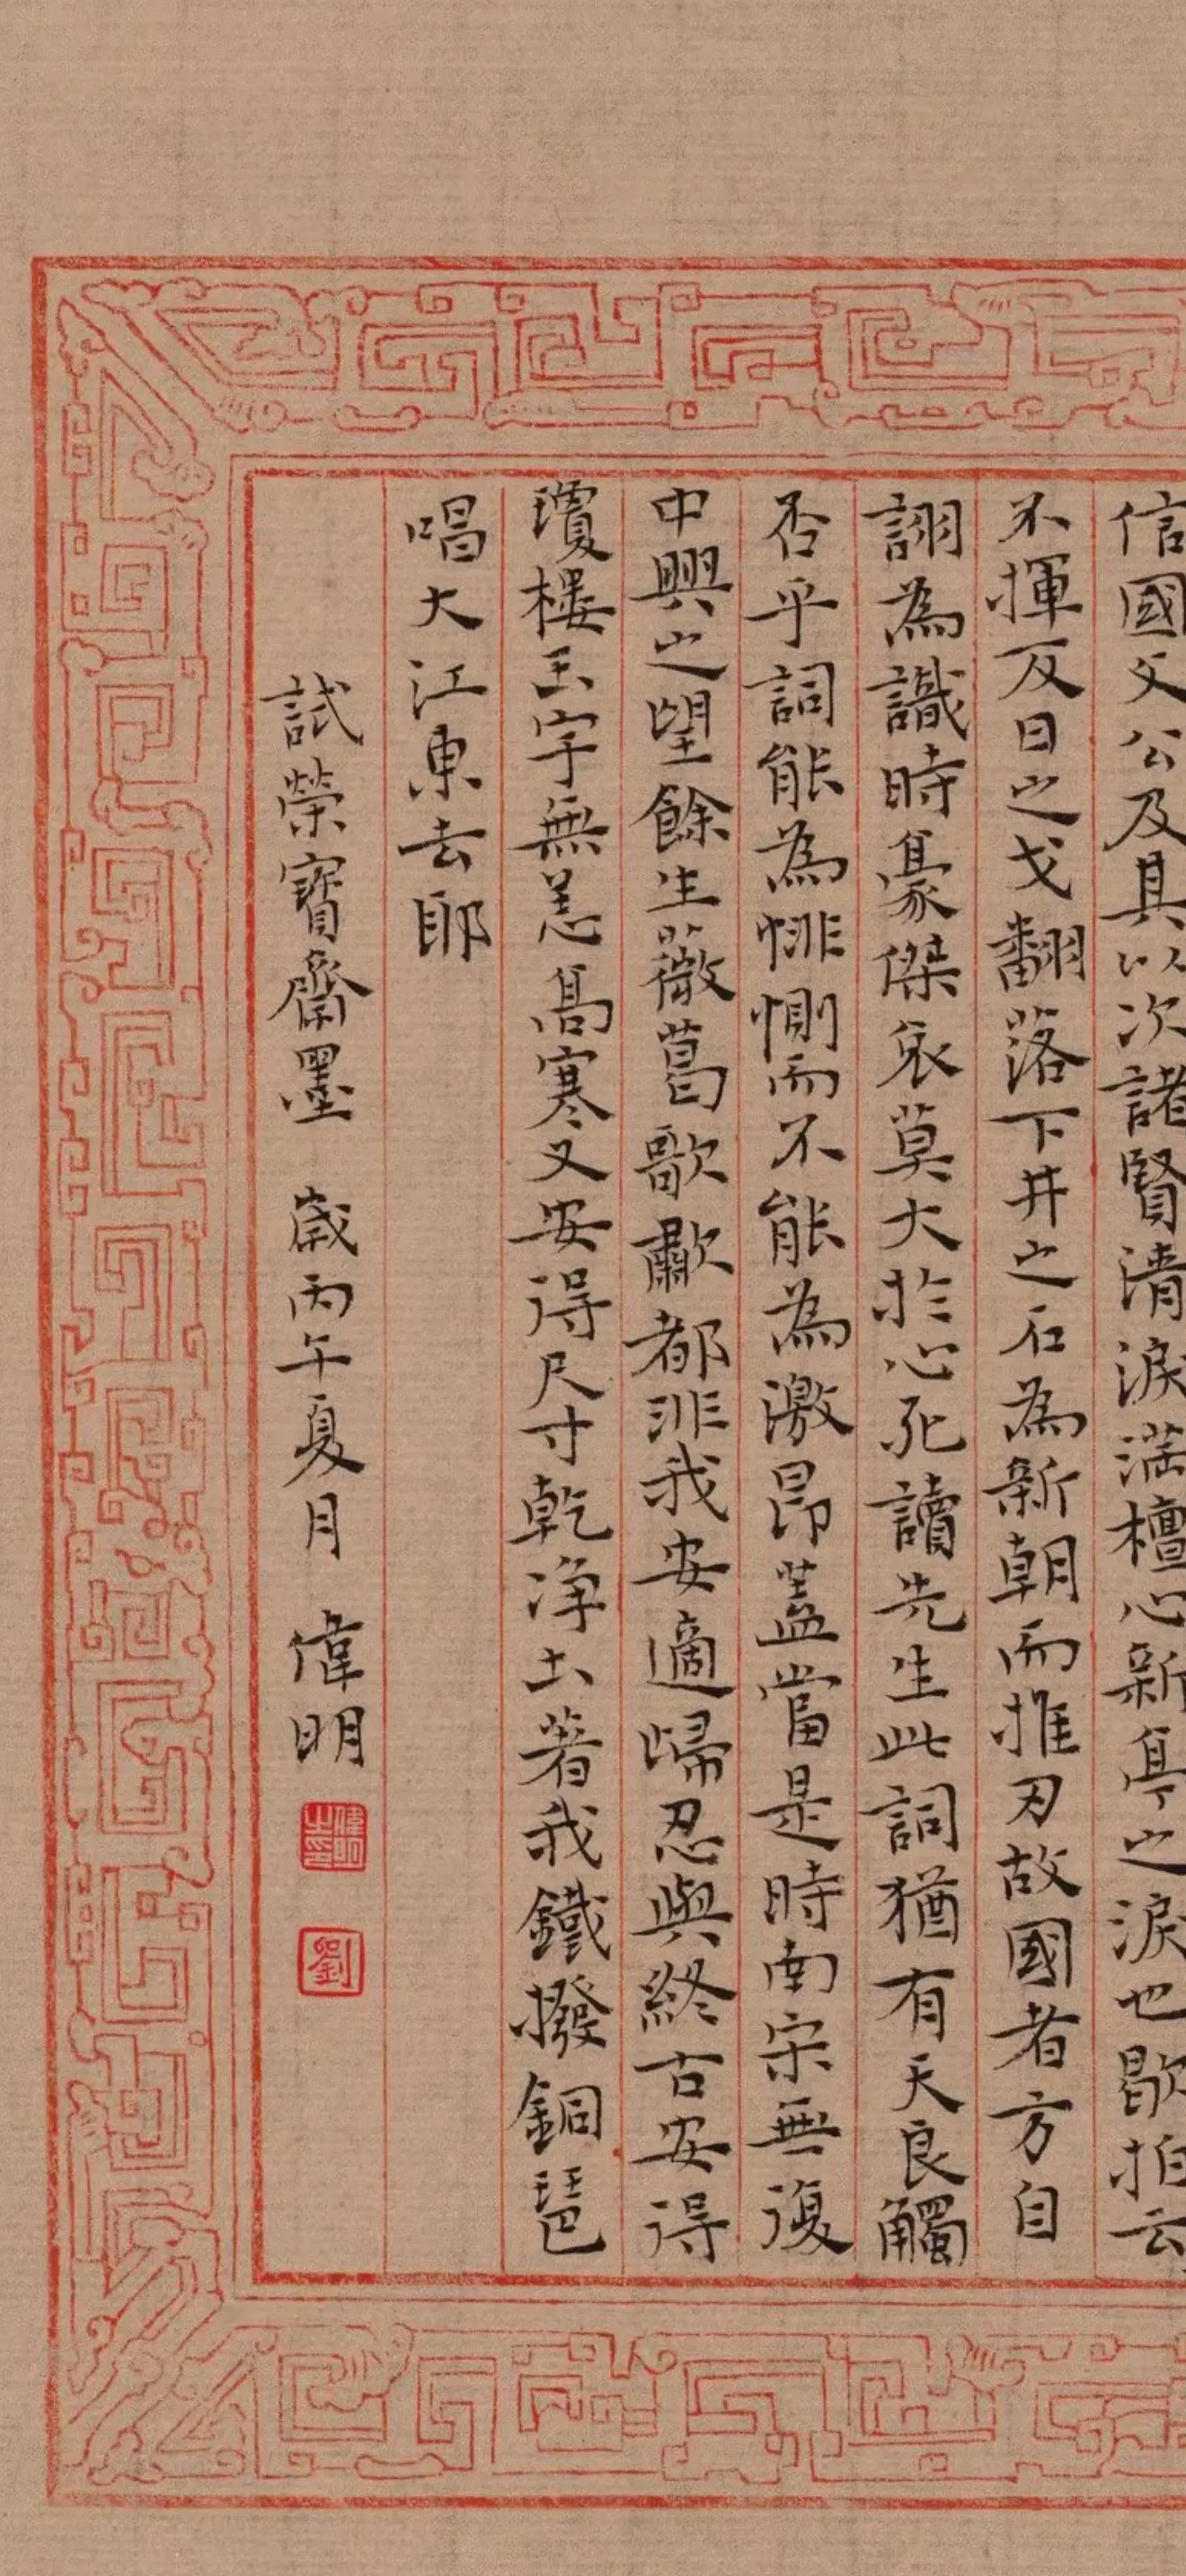 信國文公及其以次諸賢清淚滿檀心新亭之淚也歇拍云
不揮反日之戈翻落下井之石為新朝而推刃故國者方自
詡為識時豪傑哀莫大於心死讀先生此詞猶有天良觸
否乎詞能為悱惻而不能為激昂蓋當是時南宋無復
中興之望餘生薇葛歌歗都非我安適歸忍與終古安得
瓊樓玉宇無恙高寒又安得尺寸乾淨土著我鐵撥銅琶
唱大江東去耶
試榮寶齋墨 歲丙午夏月 偉明
偉明之印
劉